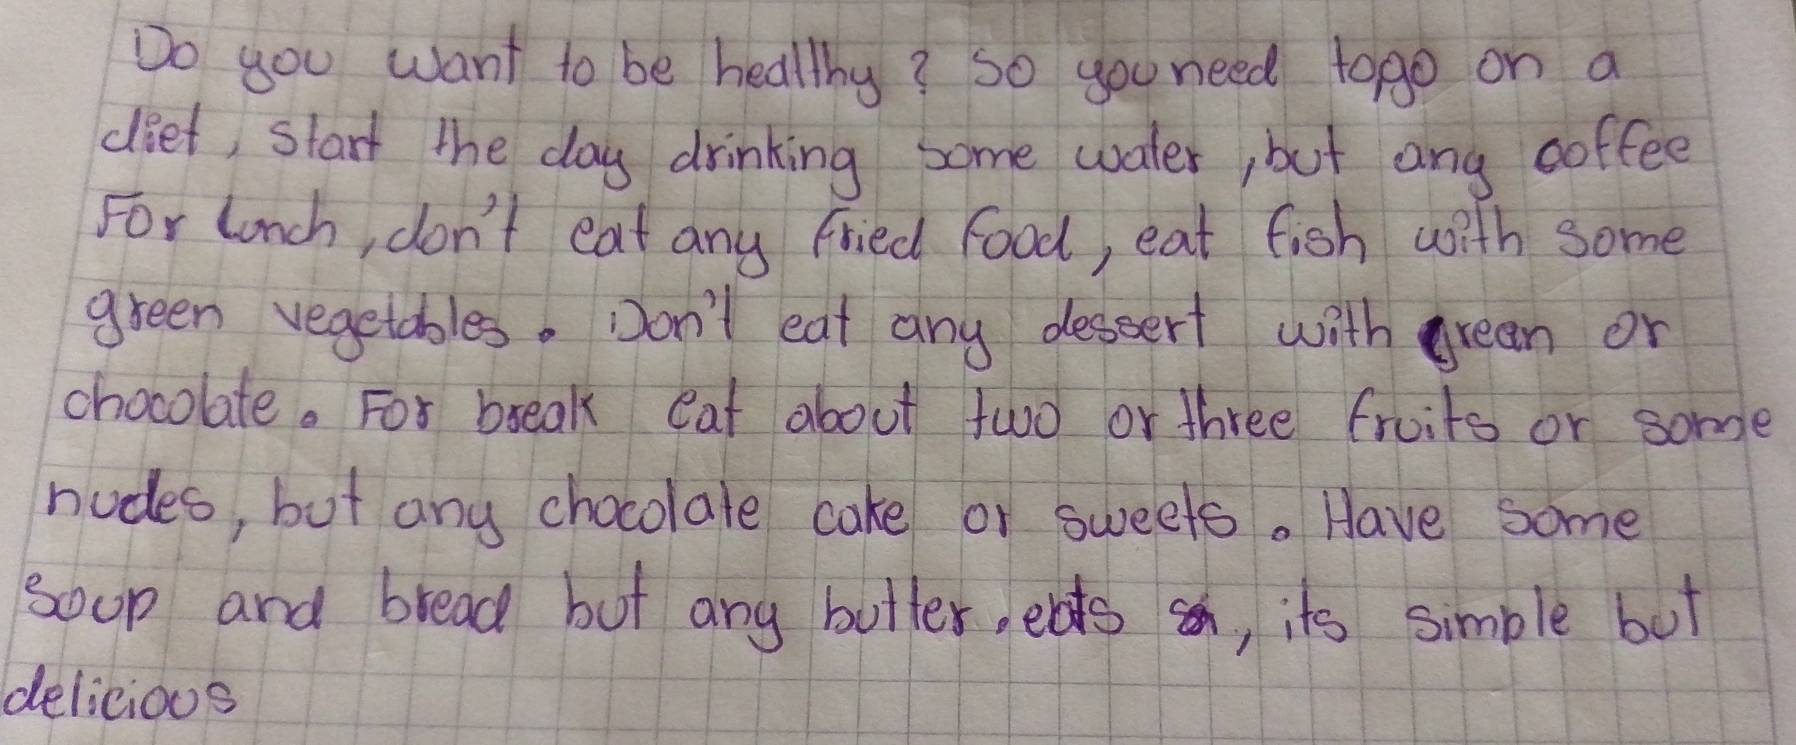 Do you want to be healthy? So you need to go on a
diet, start the day drinking some water, but any coffee
For lunch, don't eat any fried food, eat fish with some
green vegetables. Don't eat any dessert with green or
chocolate. For break eat about two or three fruits or some
nudes, but any chocolate cake or sweets. Have some
soup and bread but any butter, its simple but
delicious